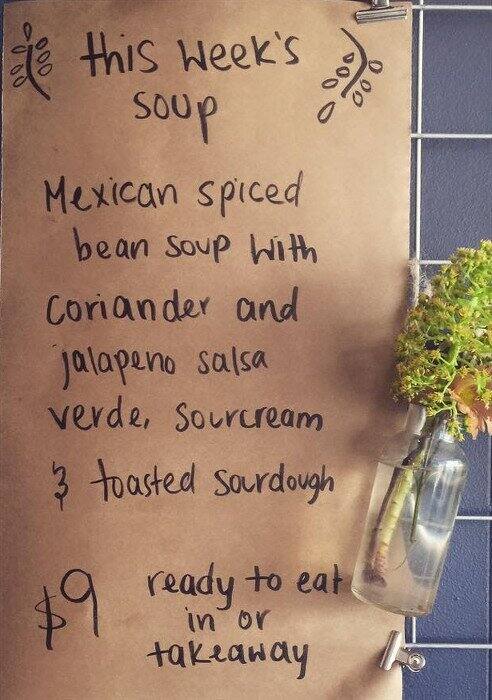 this week's
soup
Mexican spiced
bean soup with
coriander and
jalapeno salsa
verde, sourcream
& toasted sourdough
$9 ready to eat
in or
takeaway